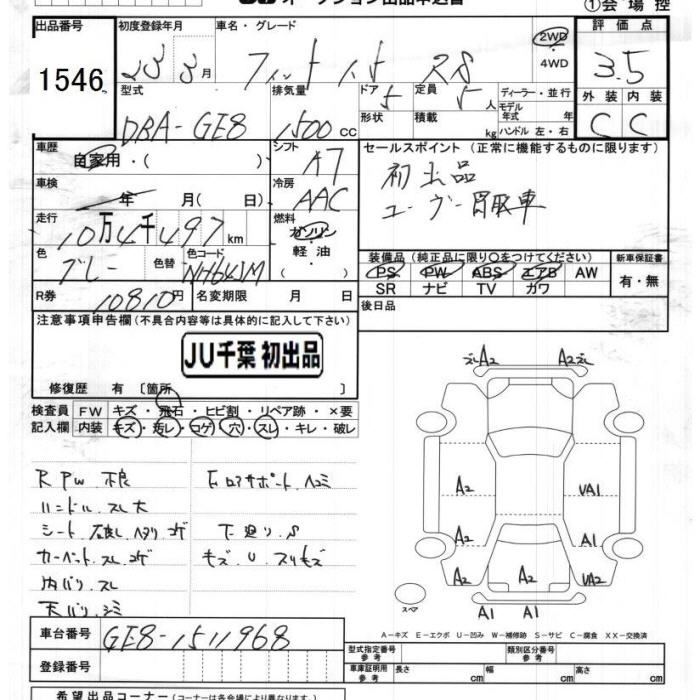 ①会場控
出品番号
1546
初度登録年月
23 3月
車名・グレード
フィット ハイブ RS
2WD
4WD
評価点
3.5
外装 内装
C C
型式
DBA-GE8
排気量
1500 CC
ドア 5
形状
定員 5 人
積載 kg
ディーラー・並行
モデル年式 年
ハンドル 左・右
車歴
自家用・( )
シフト
A7
車検
年 月( 日)
冷房
AAC
走行
10万4千497 km
燃料
ガソリン
軽油
( )
色
グレー
色替
色コード
NH643M
R券
10810円
名変期限 月 日
セールスポイント (正常に機能するものに限ります)
初出品
ユーザー買取車
装備品 (純正品に限り○をつけてください)
PS PW ABS エアB AW
SR ナビ TV カワ
新車保証書
有・無
後日品
注意事項申告欄 (不具合内容等は具体的に記入して下さい)
JU千葉 初出品
修復歴 有 〔箇所 〕
検査員 FW キズ・飛石・ヒビ割・リペア跡・×要
記入欄 内装 キズ・汚レ・コゲ・穴・スレ・キレ・破レ
R PW 不良
ハンドル スレ大
シート 汚レ ヘタリ コゲ
カーペット スレ コゲ
内バリ スレ
天バリ シミ
F ロアサポート ヘコミ
下廻り S
キズ U スリキズ
ズレ A2 A2 ズレ
A2 VA1
A2 A1
A2 A2 VA2
A1 A1
スペア
A-キズ E-エクボ U-凹み W-補修跡 S-サビ C-腐食 XX-交換済
車台番号
GE8-1511968
登録番号
型式指定番号 参考
類別区分番号 参考
車庫証明用 参考 長さ cm 幅 cm 高さ cm
希望出品コーナー (コーナーは各会場により異なります)